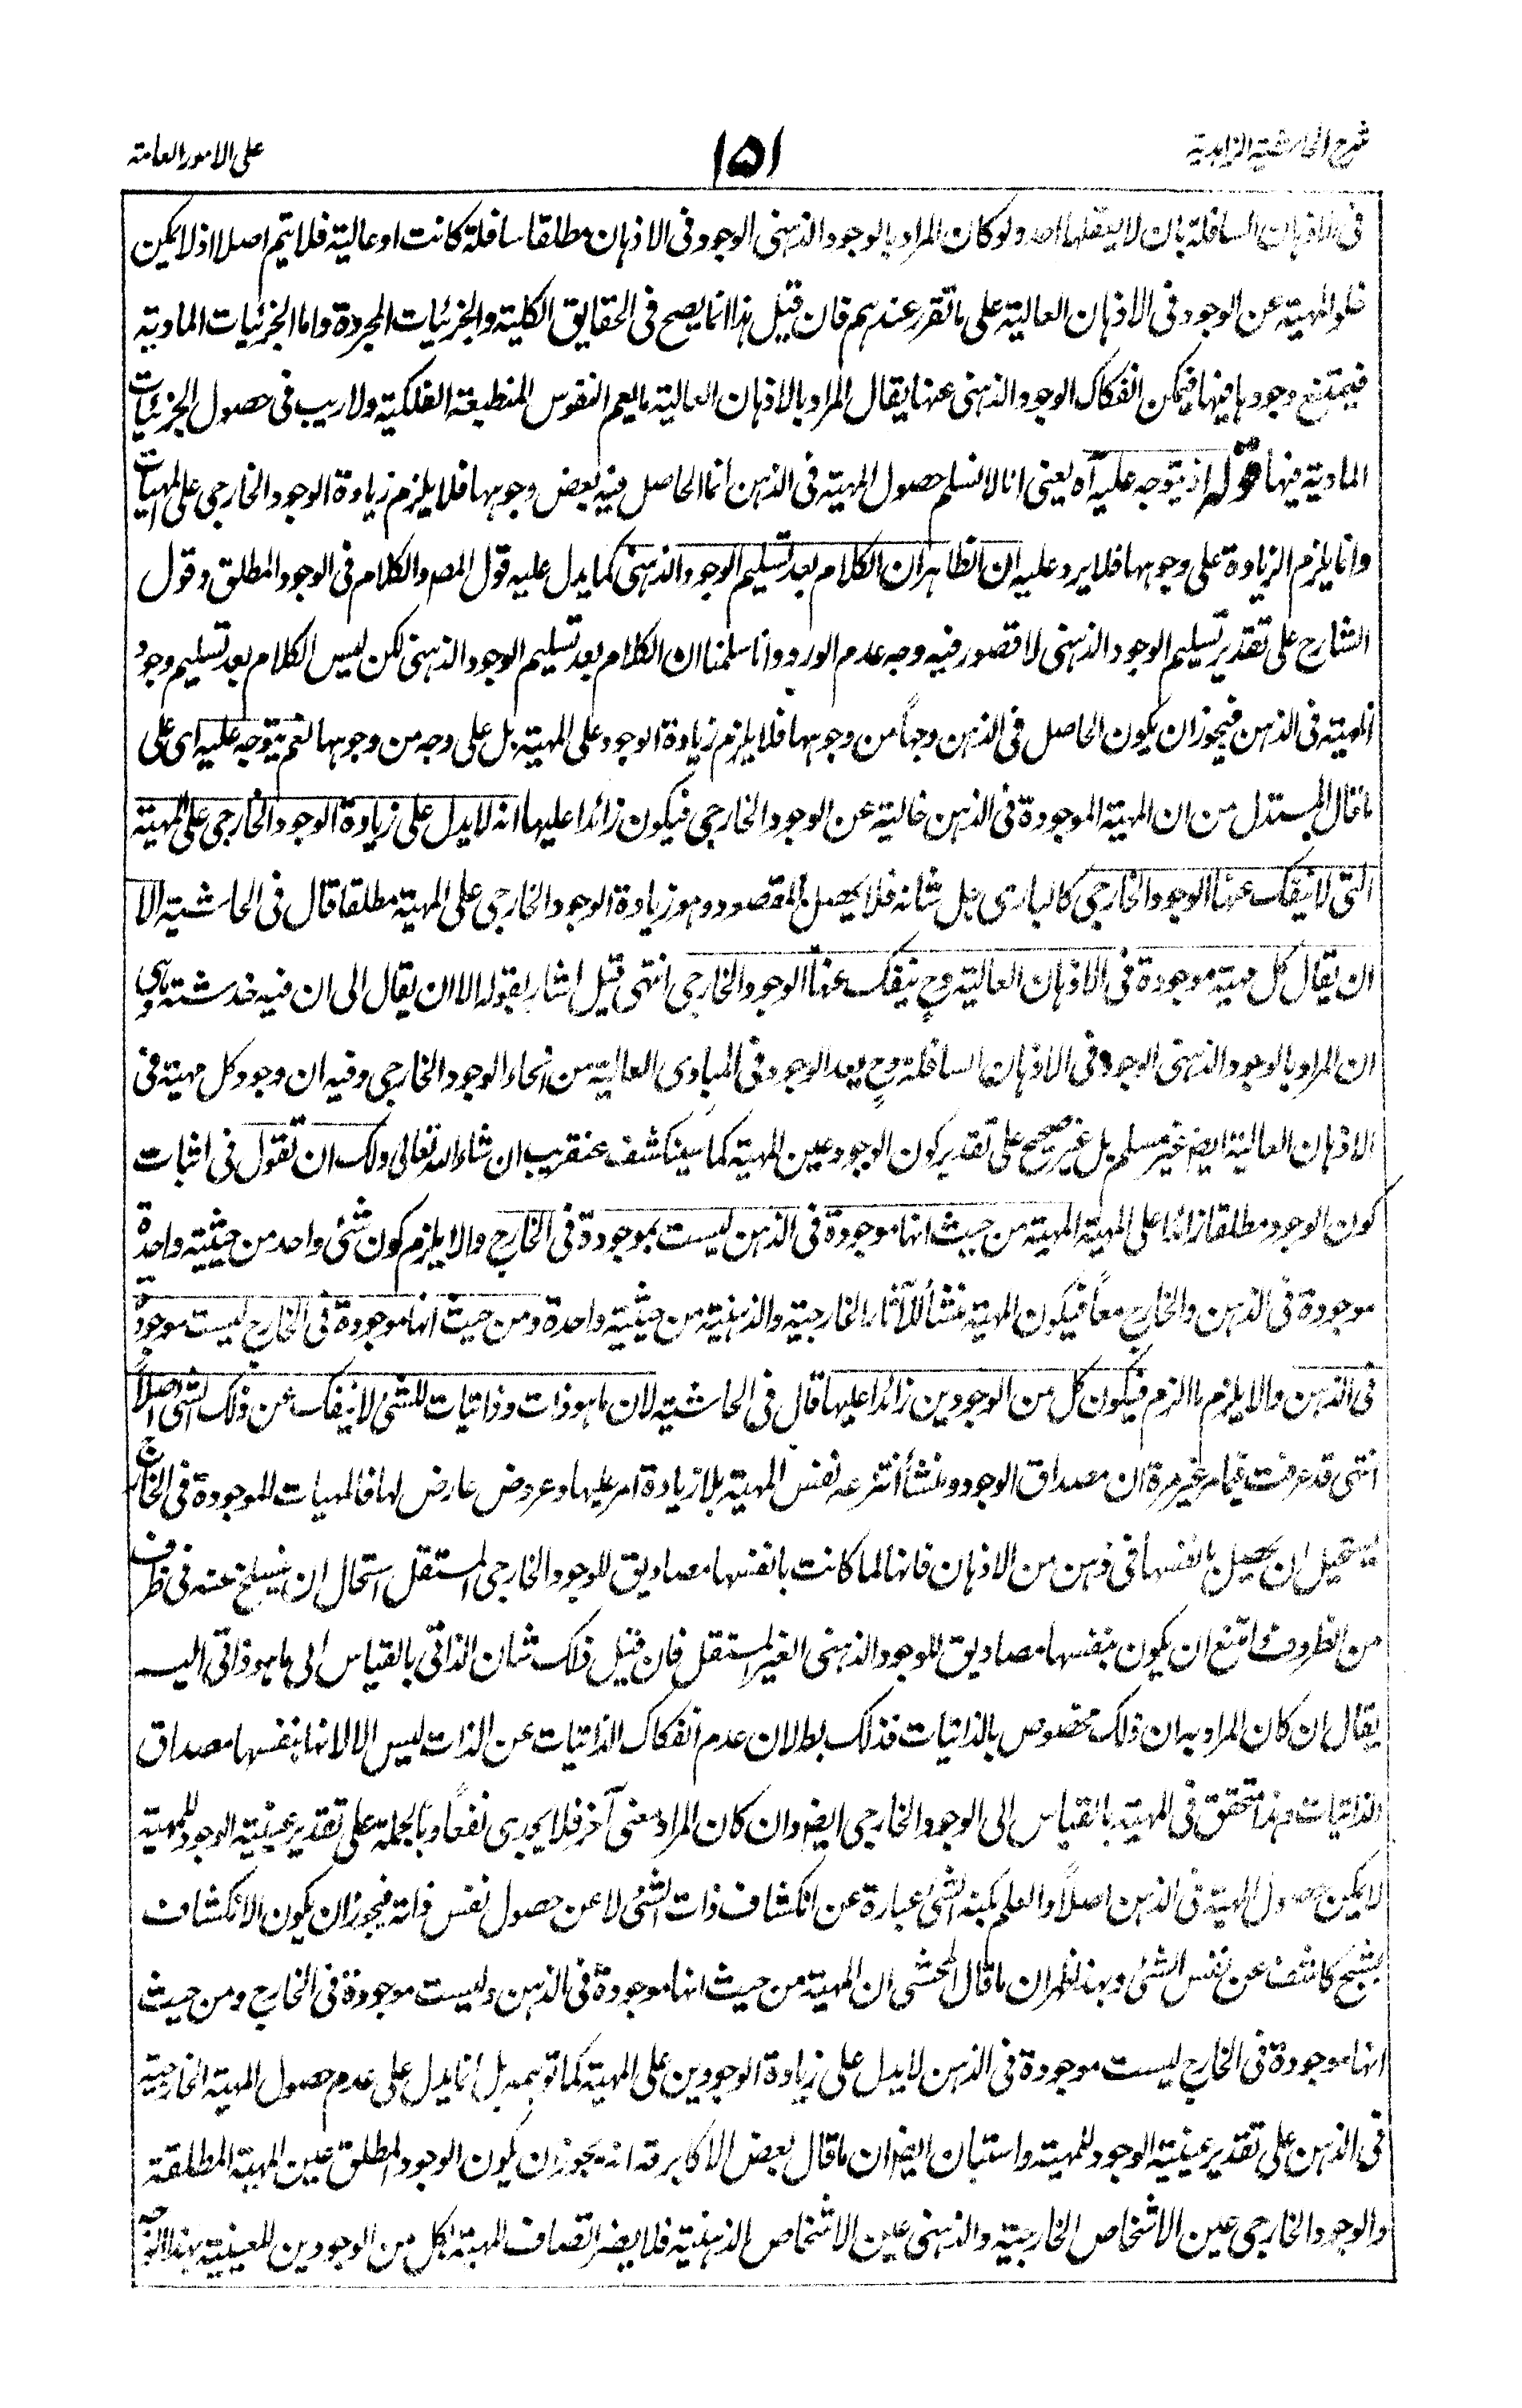 شرح الحاشية الزاهدية
١٥١
على الامور العامة
فى الاذهان السافلة بان لا يتعقلها احد ولو كان المراد بالوجود الذهنى الوجود فى الاذهان مطلقا سافلة كانت او عالية فلا يتم اصلا اذ لا يمكن
خلو المهية عن الوجود فى الاذهان العالية على ما تقرر عندهم فان قيل هذا انما يصح فى الحقايق الكلية والجزئيات المجردة واما الجزئيات المادية
فيمتنع وجودها فيها فيمكن انفكاك الوجود الذهنى عنها يقال المراد بالاذهان العالية ما يعم النفوس المنطبعة الفلكية ولا ريب فى حصول الجزئيات
المادية فيها قوله اذ يتوجه عليه آه يعنى انا لا نسلم حصول المهية فى الذهن انما الحاصل فيه بعض وجوهها فلا يلزم زيادة الوجود الخارجى على المهيات
وانما يلزم الزيادة على وجوهها فلا يرد عليه ان الظاهر ان الكلام بعد تسليم الوجود الذهنى كما يدل عليه قول المصـ والكلام فى الوجود المطلق وقول
الشارح على تقدير تسليم الوجود الذهنى لا قصور فيه وجه عدم الورود انا سلمنا ان الكلام بعد تسليم الوجود الذهنى لكن ليس الكلام بعد تسليم وجود
المهية فى الذهن فيجوز ان يكون الحاصل فى الذهن وجهاً من وجوهها فلا يلزم زيادة الوجود على المهية بل على وجه من وجوهها نعم يتوجه عليه اى على
ما قال المستدل من ان المهية الموجودة فى الذهن خالية عن الوجود الخارجى فيكون زائدا عليها انه لا يدل على زيادة الوجود الخارجى على المهية
التى لا ينفك عنها الوجود الخارجى كالبارى جل شانه فلا يحصل المقصود وهو زيادة الوجود الخارجى على المهية مطلقا قال فى الحاشية الا
ان يقال كل مهية موجودة فى الاذهان العالية وح ينفك عنها الوجود الخارجى انتهى قيل اشار بقوله الا ان يقال الى ان فيه خدشة وهى
ان المراد بالوجود الذهنى الوجود فى الاذهان السافلة وح يعد الوجود فى المبادى العالية من انحاء الوجود الخارجى وفيه ان وجود كل مهية فى
الاذهان العالية ايضـ غير مسلم بل غير صحيح على تقدير كون الوجود عين المهية كما سينكشف عنقريب ان شاء الله تعالى ولك ان تقول فى اثبات
كون الوجود مطلقا زائدا على المهية المهية من حيث انها موجودة فى الذهن ليست بموجودة فى الخارج والا يلزم كون شئ واحد من حيثية واحدة
موجودة فى الذهن والخارج معاً فيكون المهية منشأ للآثار الخارجية والذهنية من حيثية واحدة ومن حيث انها موجودة فى الخارج ليست موجودة
فى الذهن والا يلزم ما الزم فيكون كل من الوجودين زائدا عليها قال فى الحاشية لان ما هو ذات وذاتيات للشئ لا ينفك عن ذلك الشئ اصلاً
انتهى قد عرفت فيما مر غير مرة ان مصداق الوجود ومنشأ انتزعه نفس المهية بلا زيادة امر عليها وعروض عارض لها فالمهيات للموجودة فى الخارج
يستحيل ان يحصل بانفسها فى ذهن من الاذهان فانها لما كانت بانفسها مصاديق للوجود الخارجى المستقل استحال ان ينسلخ عنه فى ظرف
من الظروف وامتنع ان يكون بنفسها مصاديق للوجود الذهنى الغير المستقل فان قيل ذلك شان الذاتى بالقياس الى ما هو ذاتى اليه
يقال ان كان المراد به ان ذلك مخصوص بالذاتيات فذلك بط لان عدم انفكاك الذاتيات عن الذات ليس الا لانها بنفسها مصداق
الذاتيات وهذا متحقق فى المهية بالقياس الى الوجود الخارجى ايضـ وان كان المراد معنى آخر فلا يجدى نفعاً وبالجملة على تقدير عينية الوجود للمهية
لا يمكن حصول المهية فى الذهن اصلاً والعلم بكنه الشئ عبارة عن انكشاف ذات الشئ لا عن حصول نفس ذاته فيجوز ان يكون الانكشاف
بشبح كاشف عن نفس الشئ وبهذا ظهر ان ما قال المحشى ان المهية من حيث انها موجودة فى الذهن وليست موجودة فى الخارج ومن حيث
انها موجودة فى الخارج ليست موجودة فى الذهن لا يدل على زيادة الوجودين على المهية كما توهمه بل انما يدل على عدم حصول المهية الخارجية
فى الذهن على تقدير عينية الوجود للمهية واستبان ايضـ ان ما قال بعض الاكابر قه انه يجوز ان يكون الوجود المطلق عين المهية المطلقة
والوجود الخارجى عين الاشخاص الخارجية والذهنى عين الاشخاص الذهنية فلا يضر اتصاف المهية بكل من الوجودين للعينية بهذا الوجه